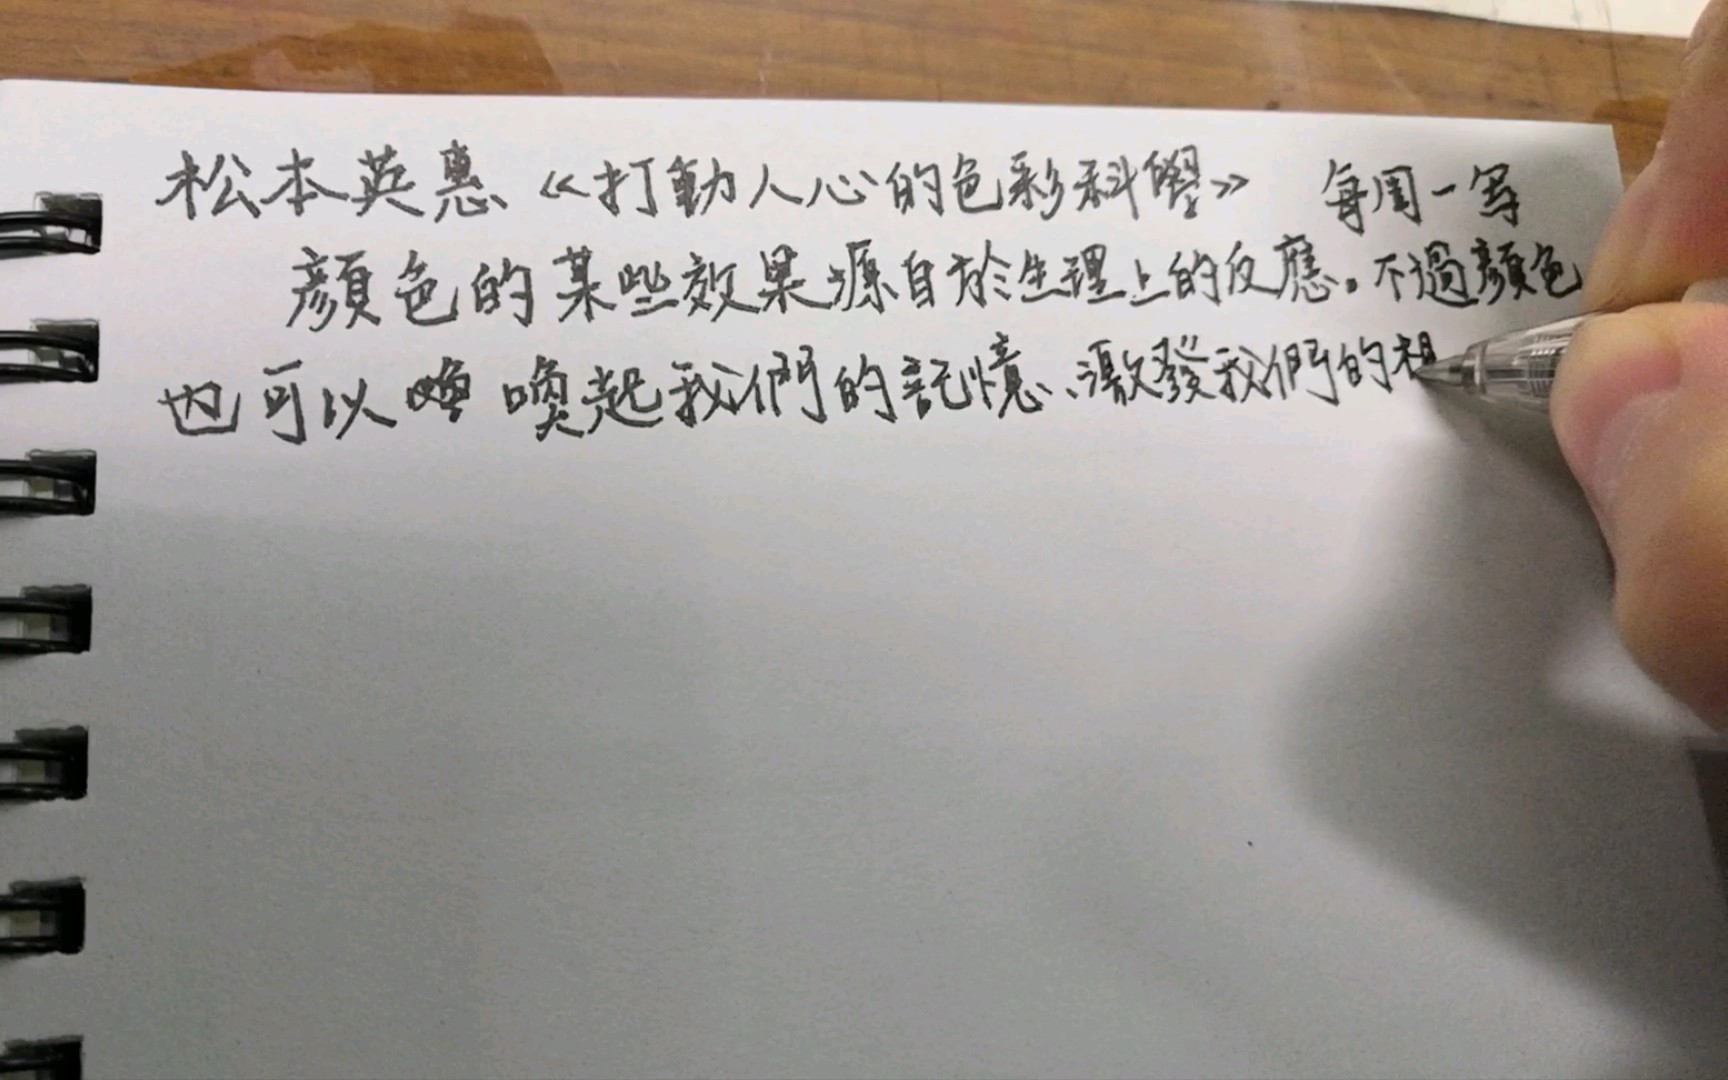 松本英惠《打動人心的色彩科學》 每周一写
顏色的某些效果源自於生理上的反應。不過顏色
也可以喚起我們的記憶、激發我們的